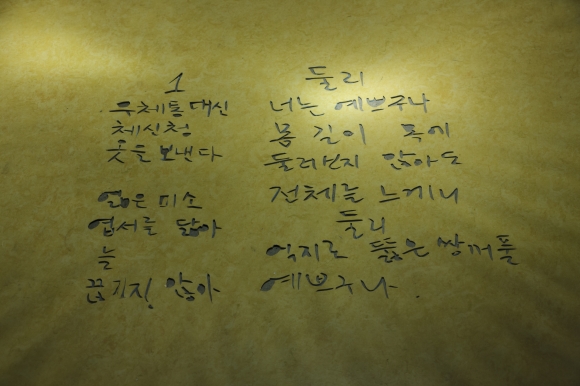 1
우체통 대신
체신청
옷을 보낸다
엷은 미소
엽서를 닮아
늘
끊기지 않아
둘리
너는 예쁘구나
몸 길이 폭에
둘러보지 않아도
전체를 느끼니
둘리
억지로 뚫은 쌍꺼풀
예쁘구나